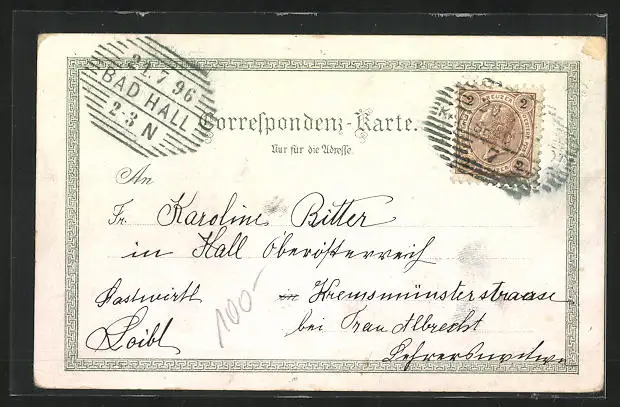 21.7.96
BAD HALL
2-3 N
2 KREUZER 2
2
7
Correspondenz-Karte.
Nur für die Adresse.
An
Fr. Karoline Ritter
in Hall Oberösterreich
Gastwirth in Kremsmünsterstraase
Loibl bei Frau Albrecht
Lehrerswitwe
100-